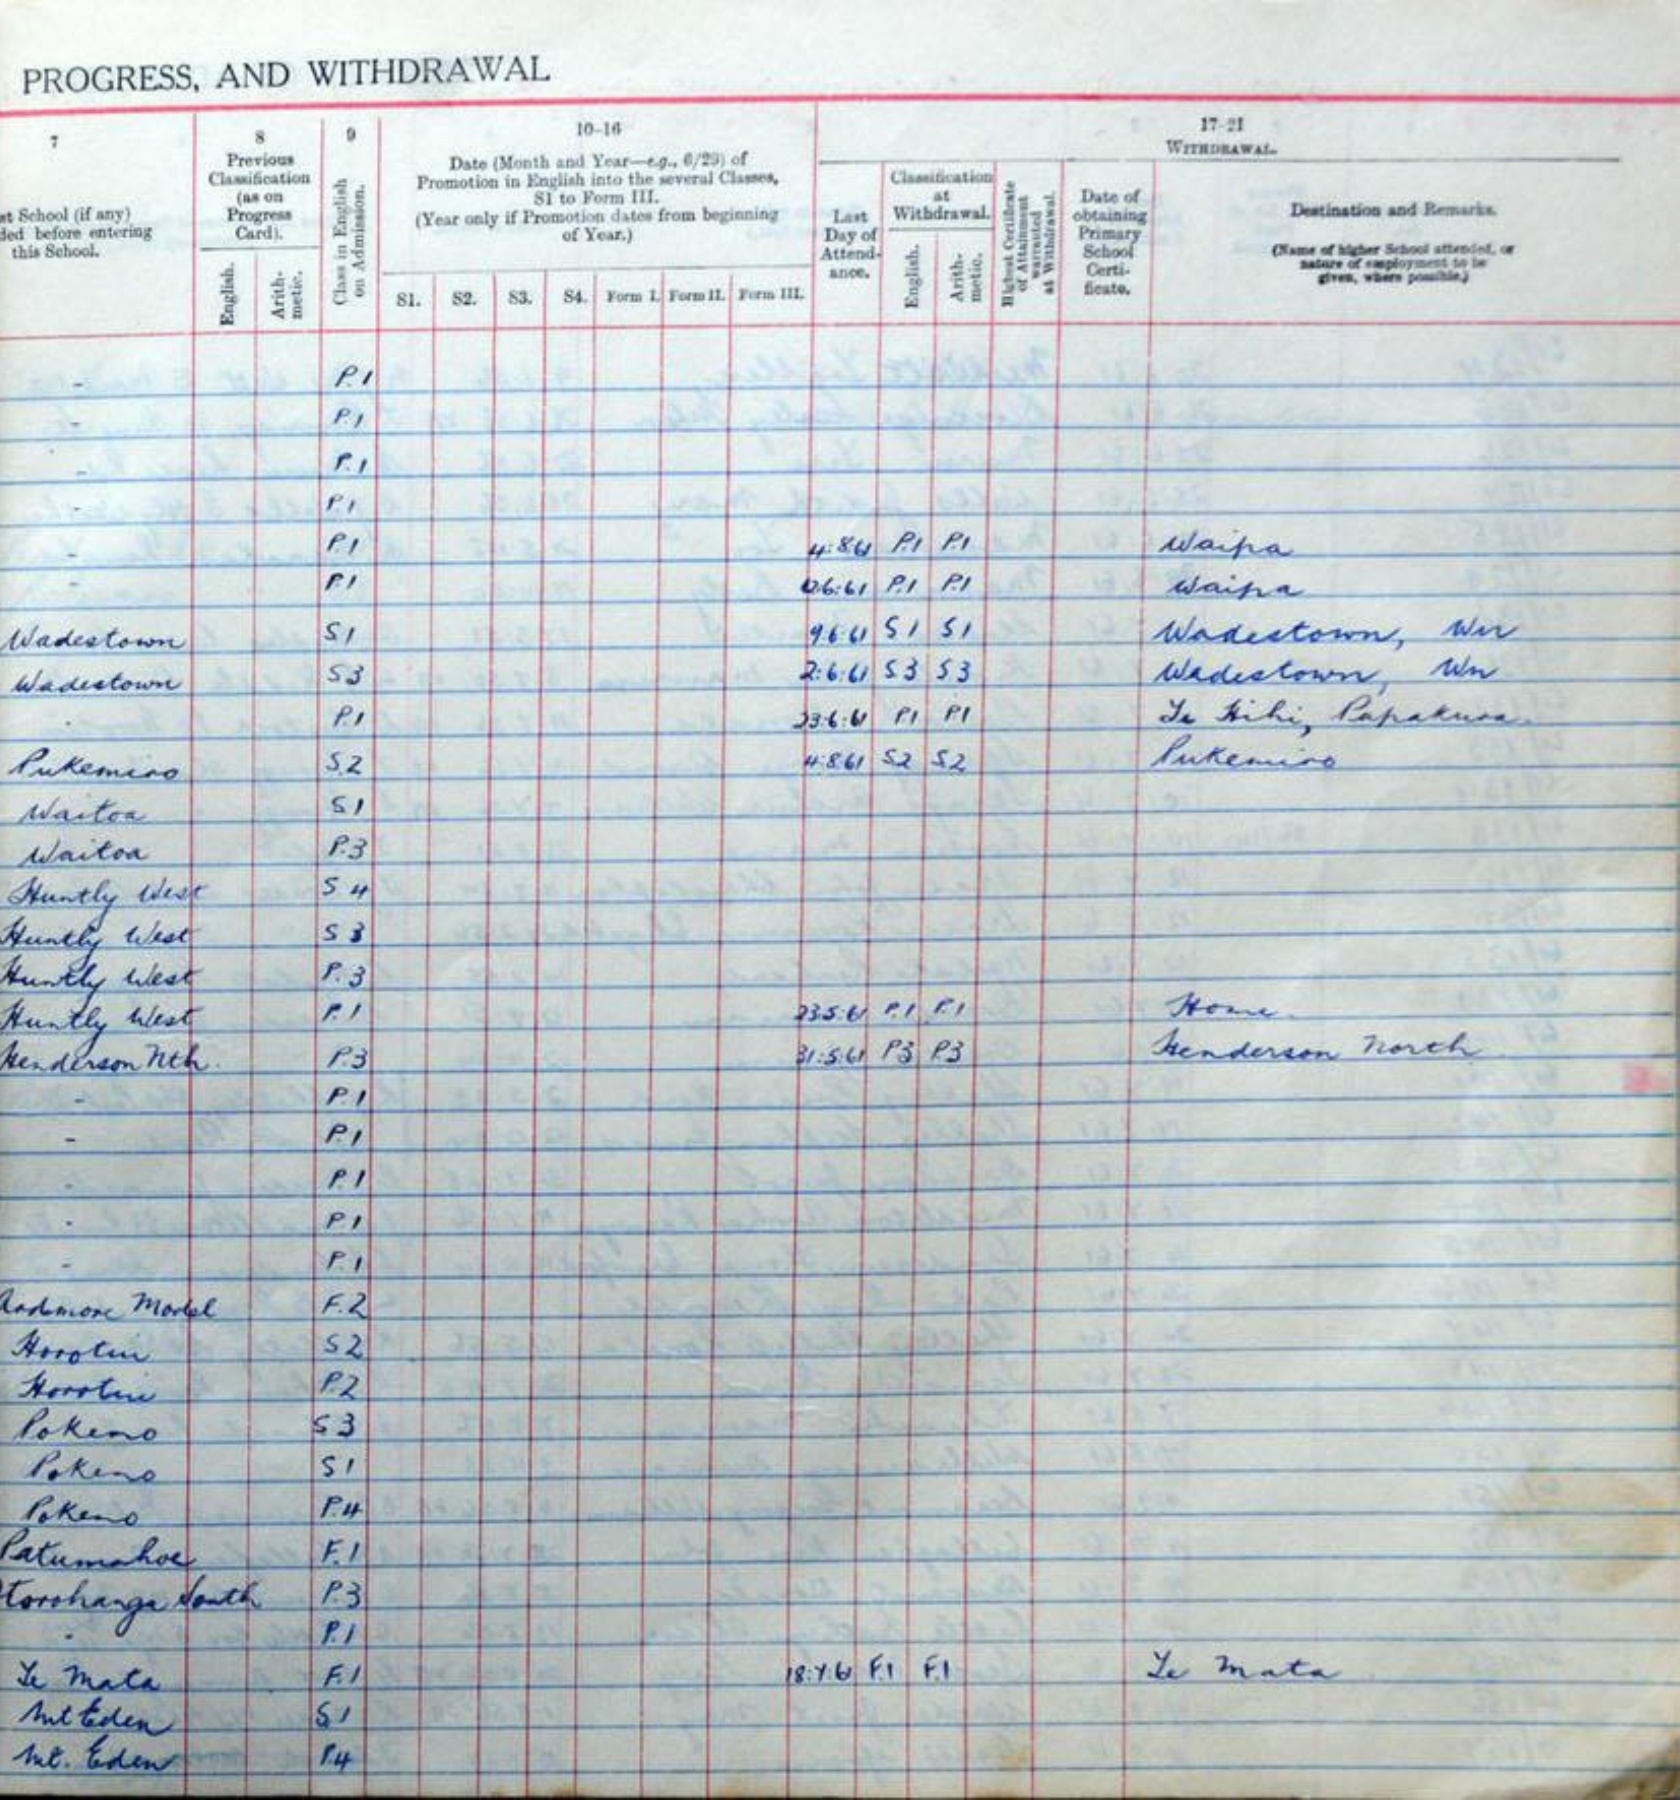 PROGRESS, AND WITHDRAWAL
7
st School (if any)
ded before entering
this School.
8
Previous
Classification
(as on
Progress
Card).
English.
Arith-
metic.
9
Class in English
on Admission.
10-16
Date (Month and Year—e.g., 6/29) of
Promotion in English into the several Classes,
S1 to Form III.
(Year only if Promotion dates from beginning
of Year.)
S1. S2. S3. S4. Form I. Form II. Form III.
17-21
WITHDRAWAL.
Last
Day of
Attend-
ance.
Classification
at
Withdrawal.
English.
Arith-
metic.
Highest Certificate
of Attainment
warranted
at Withdrawal.
Date of
obtaining
Primary
School
Certi-
ficate.
Destination and Remarks.
(Name of higher School attended, or
nature of employment to be
given, where possible.)
- P.1
- P.1
- P.1
- P.1
- P.1 4:8:61 P.1 P.1 Waipa
- P.1 6:61 P.1 P.1 Waipa
Wadestown S1 9:6:61 S1 S1 Wadestown, Wn
Wadestown S3 2:6:61 S3 S3 Wadestown, Wn
- P.1 23:6:61 P1 P1 Te Hihi, Papakura.
Pukemiro S2 4:8:61 S2 S2 Pukemiro
Waitoa S1
Waitoa P.3
Huntly West S4
Huntly West S3
Huntly West P.3
Huntly West P.1 23:5:61 P.1 P.1 Home.
Henderson Nth. P.3 31:5:61 P3 P3 Henderson North
- P.1
- P.1
- P.1
- P.1
- P.1
Ardmore Model F.2
Horotiu S2
Horotiu P.2
Pokeno S3
Pokeno S1
Pokeno P.4
Patumahoe F.1
Otorohanga South P.3
- P.1
Te Mata F.1 18:7:61 F.1 F.1 Te Mata
Mt Eden S1
Mt. Eden P.4